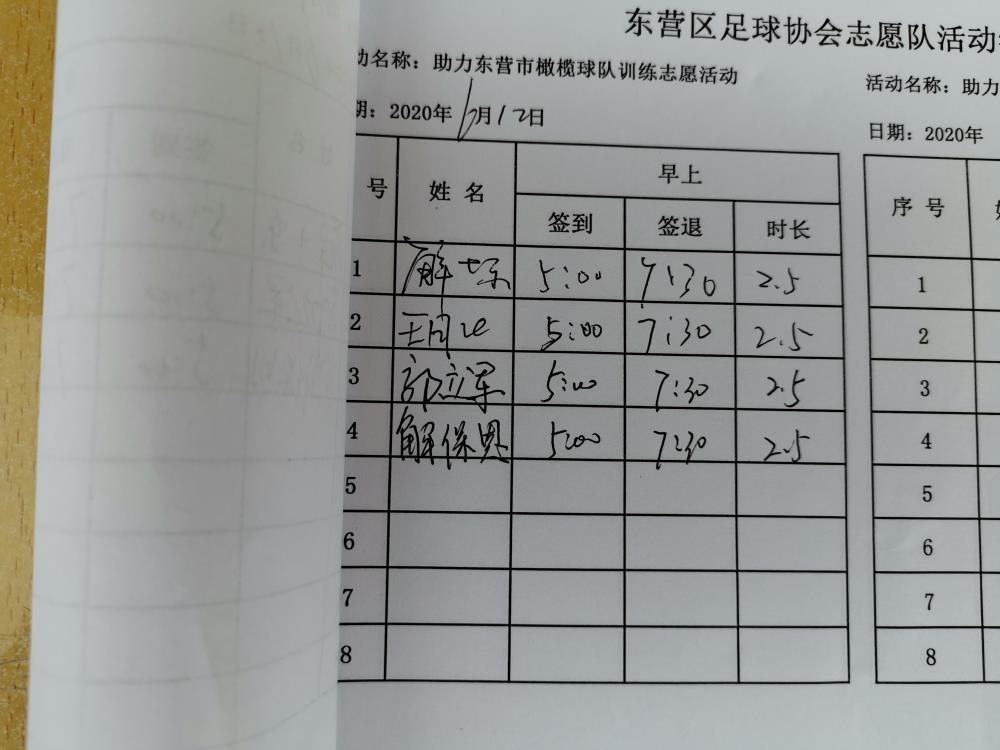 东营区足球协会志愿队活动
动名称：助力东营市橄榄球队训练志愿活动
活动名称：助力
期：2020年6月12日
日期：2020年
号 姓 名 早上
签到 签退 时长
序 号
1 解 5:00 7:30 2.5
2 王 5:00 7:30 2.5
3 郭立军 5:00 7:30 2.5
4 解保恩 5:00 7:30 2.5
5
6
7
8
1
2
3
4
5
6
7
8